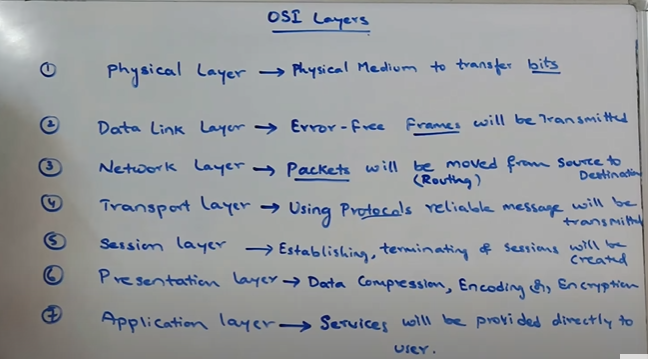 OSI Layers
① Physical Layer → Physical Medium to transfer bits
② Data Link Layer → Error-Free Frames will be Transmitted
③ Network Layer → Packets will be moved from Source to
(Routing) Destination
④ Transport Layer → Using Protocols reliable message will be
transmitted
⑤ Session layer → Establishing, terminating & sessions will be
created
⑥ Presentation layer → Data Compression, Encoding &, Encryption
⑦ Application layer → Services will be provided directly to
user.